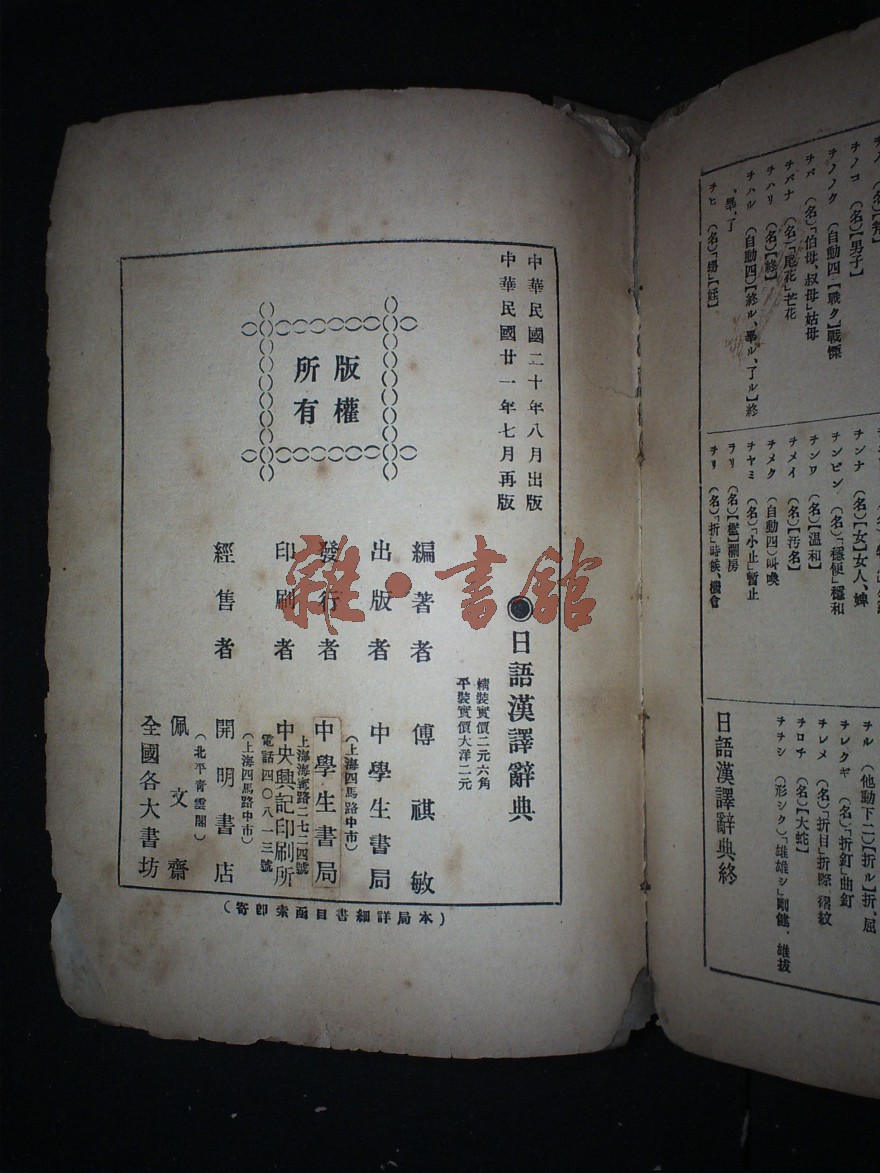 ヲノコ (名)【男子】
ヲノノク (自動四)【戰ク】戰慄
ヲバ (名)「伯母、叔母」姑母
ヲバナ (名)「尾花」芒花
ヲハリ (名)【終】
ヲハル (自動四)【終ル、畢ル、了ル】終
、畢、了
ヲヒ (名)「甥」【姪】
ヲンナ (名)【女】女人、婢
ヲンビン (名)「穩便」穩和
ヲンワ (名)【溫和】
ヲメイ (名)【汚名】
ヲメク (自動四)叫喚
ヲヤミ (名)「小止」暫止
ヲリ (名)【檻】闌房
ヲリ (名)「折」時候、機會
ヲル (他動下二)【折ル】折、屈
ヲレクギ (名)「折釘」曲釘
ヲレメ (名)「折目」折際、褶紋
ヲロチ (名)【大蛇】
ヲヲシ (形シク)「雄雄シ」剛健、雄拔
日語漢譯辭典終
中華民國二十年八月出版
中華民國廿一年七月再版
版權
所有
●日語漢譯辭典
精裝實價二元六角
平裝實價大洋二元
編著者 傅祺敏
出版者 中學生書局
(上海四馬路中市)
發行者 中學生書局
上海海甯路二七二四號
印刷者 中央興記印刷所
電話四〇八一三號
(上海四馬路中市)
經售者 開明書店
(北平青雲閣)
佩文齋
全國各大書坊
(本局詳細書目函索即寄)
雜·書館